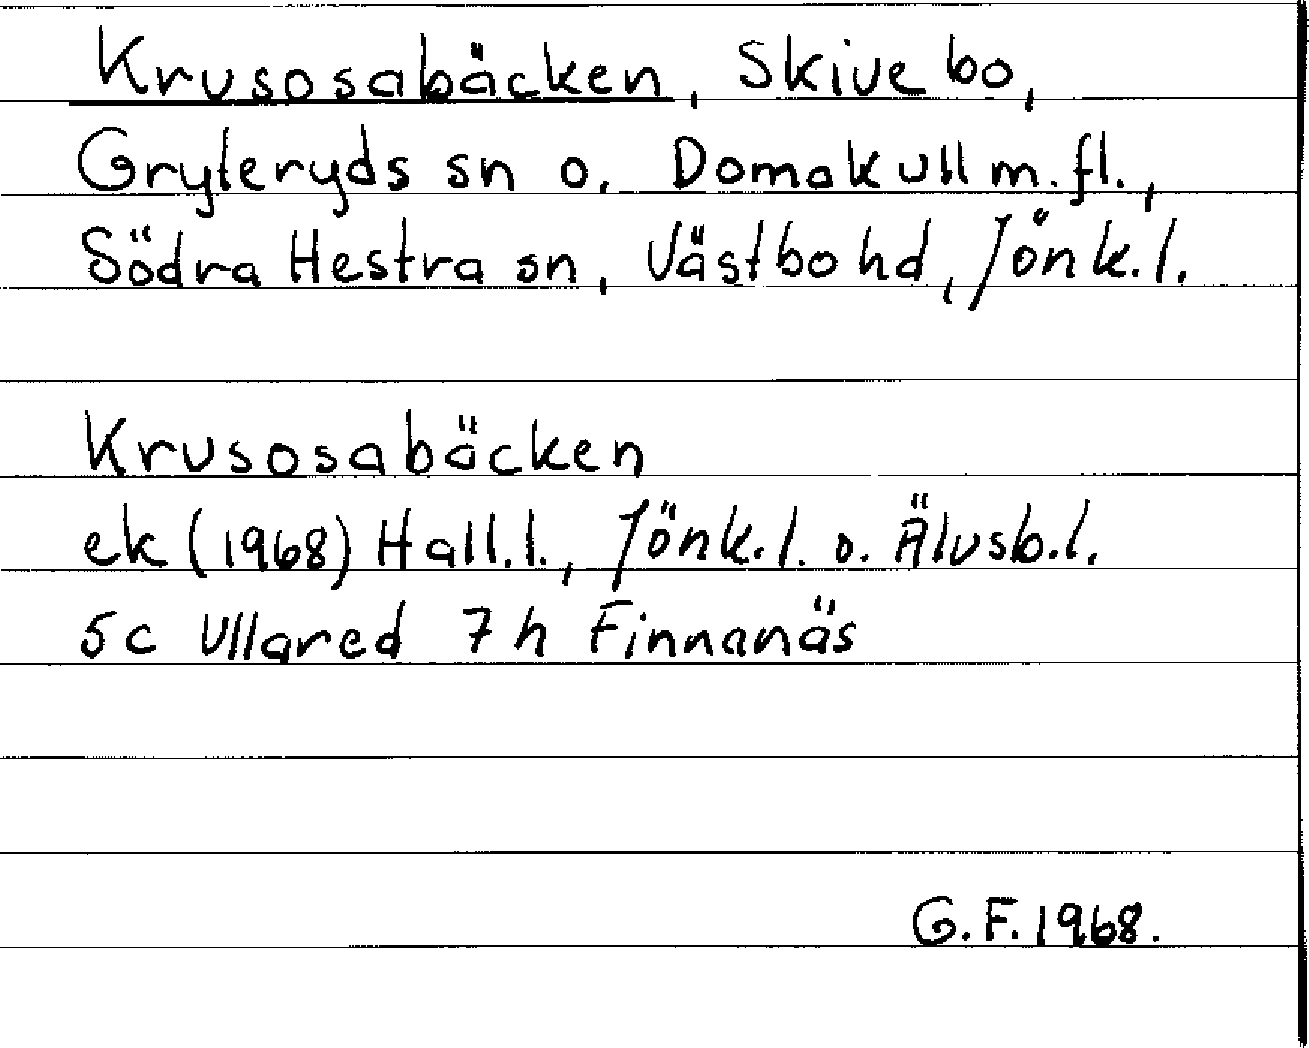 Krusosabäcken, Skivebo,
Gryteryds sn o. Domakull m.fl.,
Södra Hestra sn, Västbo hd, Jönk.l.
Krusosabäcken
ek (1968) Hall.l., Jönk.l. o. Älvsb.l.
5c Ullared 7h Finnanäs
G.F. 1968.